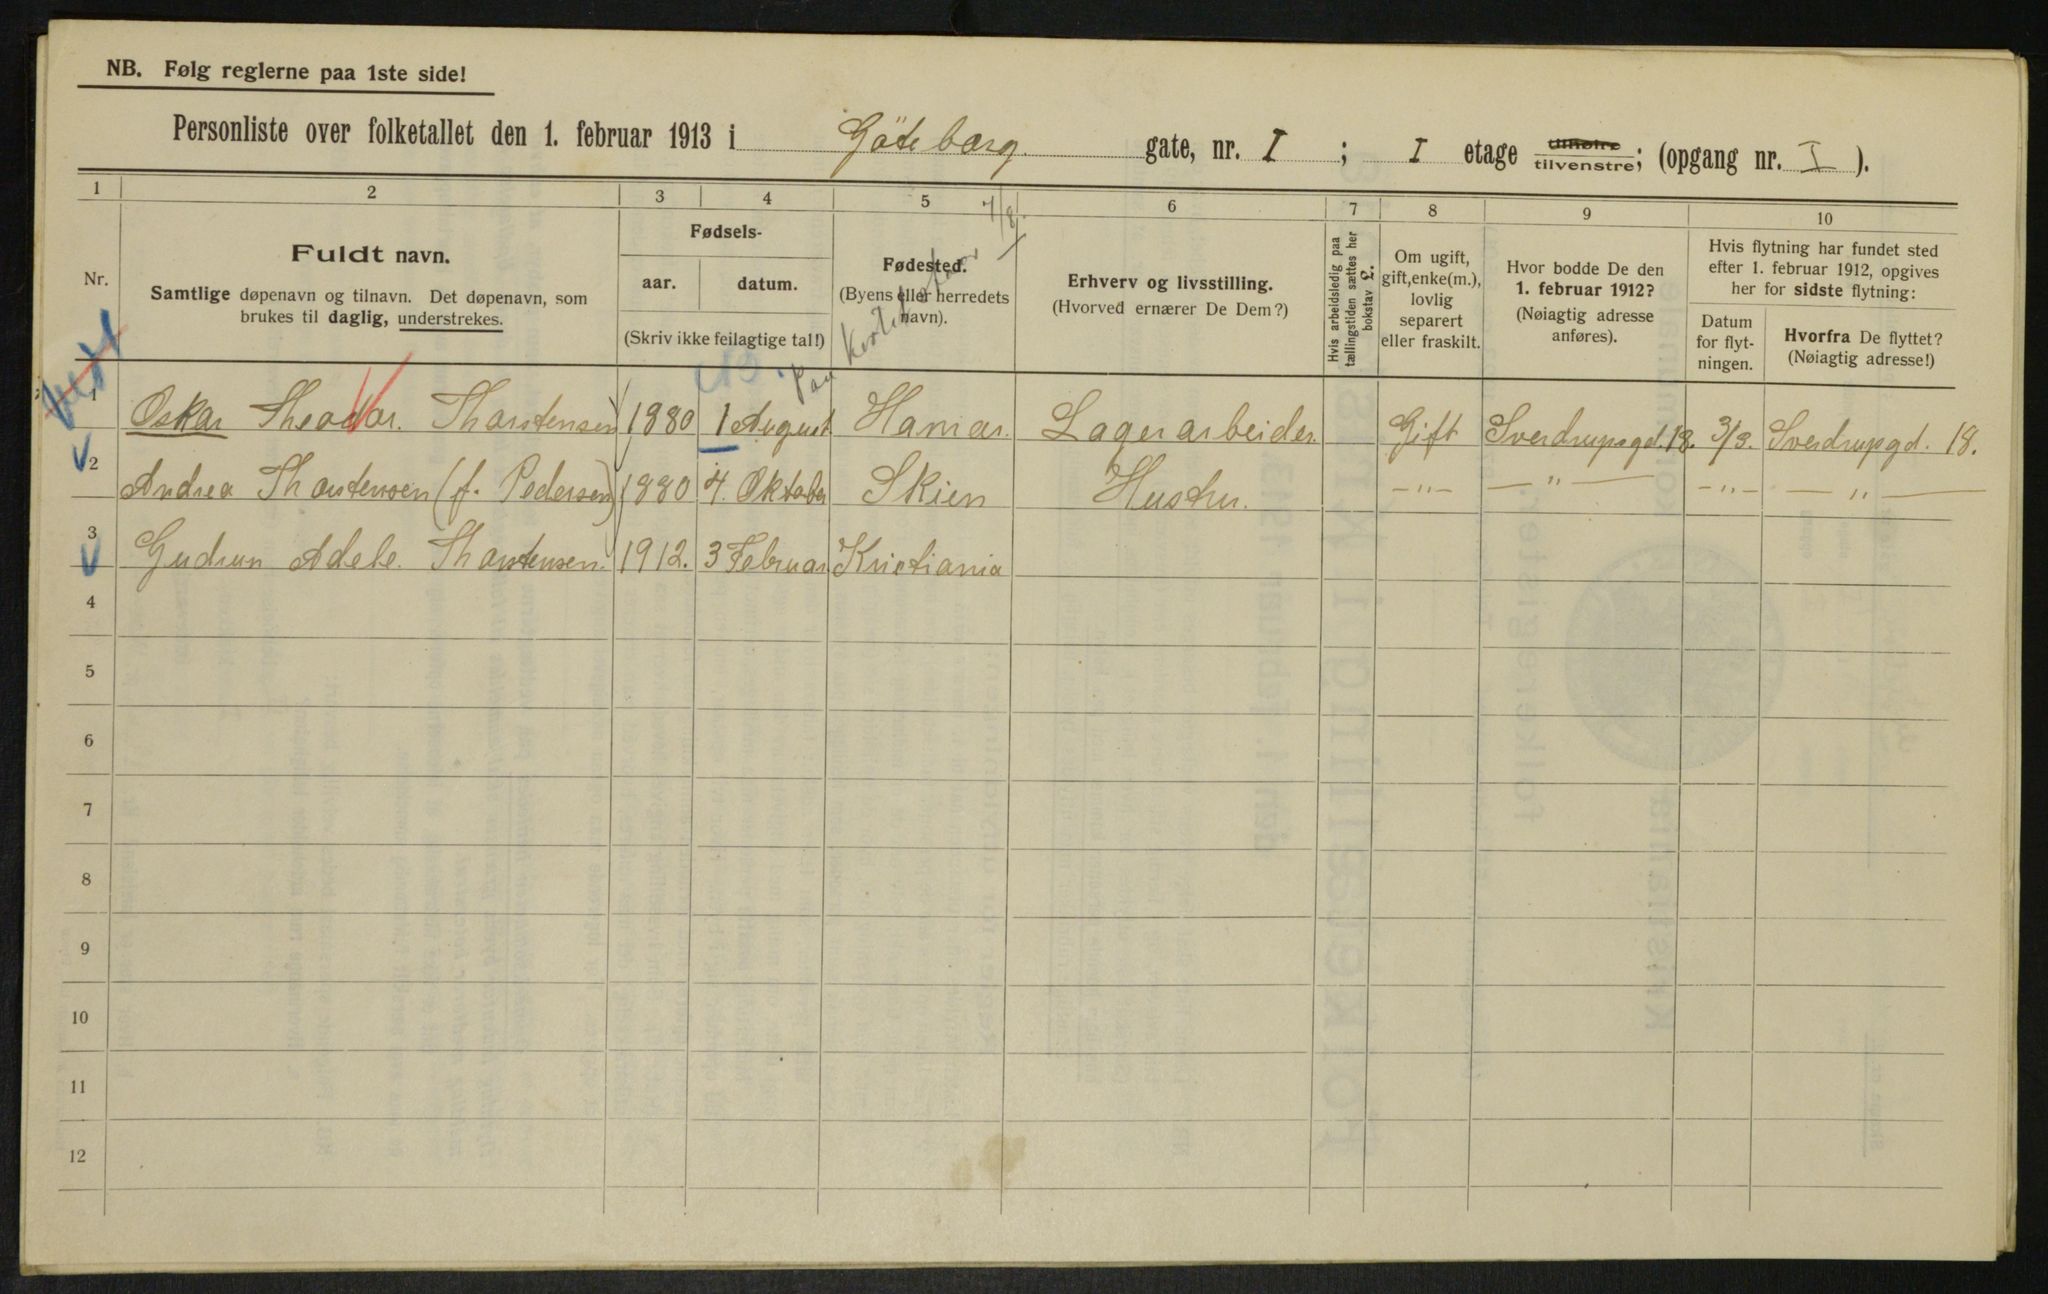 NB. Følg reglerne paa 1ste side!
Personliste over folketallet den 1. februar 1913 i Göteborg gate, nr. I ; I etage tilhøire tilvenstre; (opgang nr. I ).
1 2 3 4 5 6 7 8 9 10
Nr.
Fuldt navn.
Samtlige døpenavn og tilnavn. Det døpenavn, som
brukes til daglig, understrekes.
Fødsels-
aar. datum.
(Skriv ikke feilagtige tal!)
Fødested.
(Byens eller herredets
navn).
Erhverv og livsstilling.
(Hvorved ernærer De Dem?)
Hvis arbeidsledig paa
tællingstiden sættes her
bokstav L.
Om ugift,
gift, enke(m.),
lovlig
separert
eller fraskilt.
Hvor bodde De den
1. februar 1912?
(Nøiagtig adresse
anføres).
Hvis flytning har fundet sted
efter 1. februar 1912, opgives
her for sidste flytning:
Datum
for flyt-
ningen.
Hvorfra De flyttet?
(Nøiagtig adresse!)
1 Oskar Theodor. Thorstensen 1880 1 August. Hamar. Lagerarbeider Gift Sverdrupsgd. 18. 3/3. Sverdrupgd. 18.
2 Andrea Thorstensen (f. Pedersen) 1880 4. Oktober Skien Hustru. -"- -"- -"- -"-
3 Gudrun Adele. Thorstensen. 1912. 3 Februar Kristiania
4
5
6
7
8
9
10
11
12